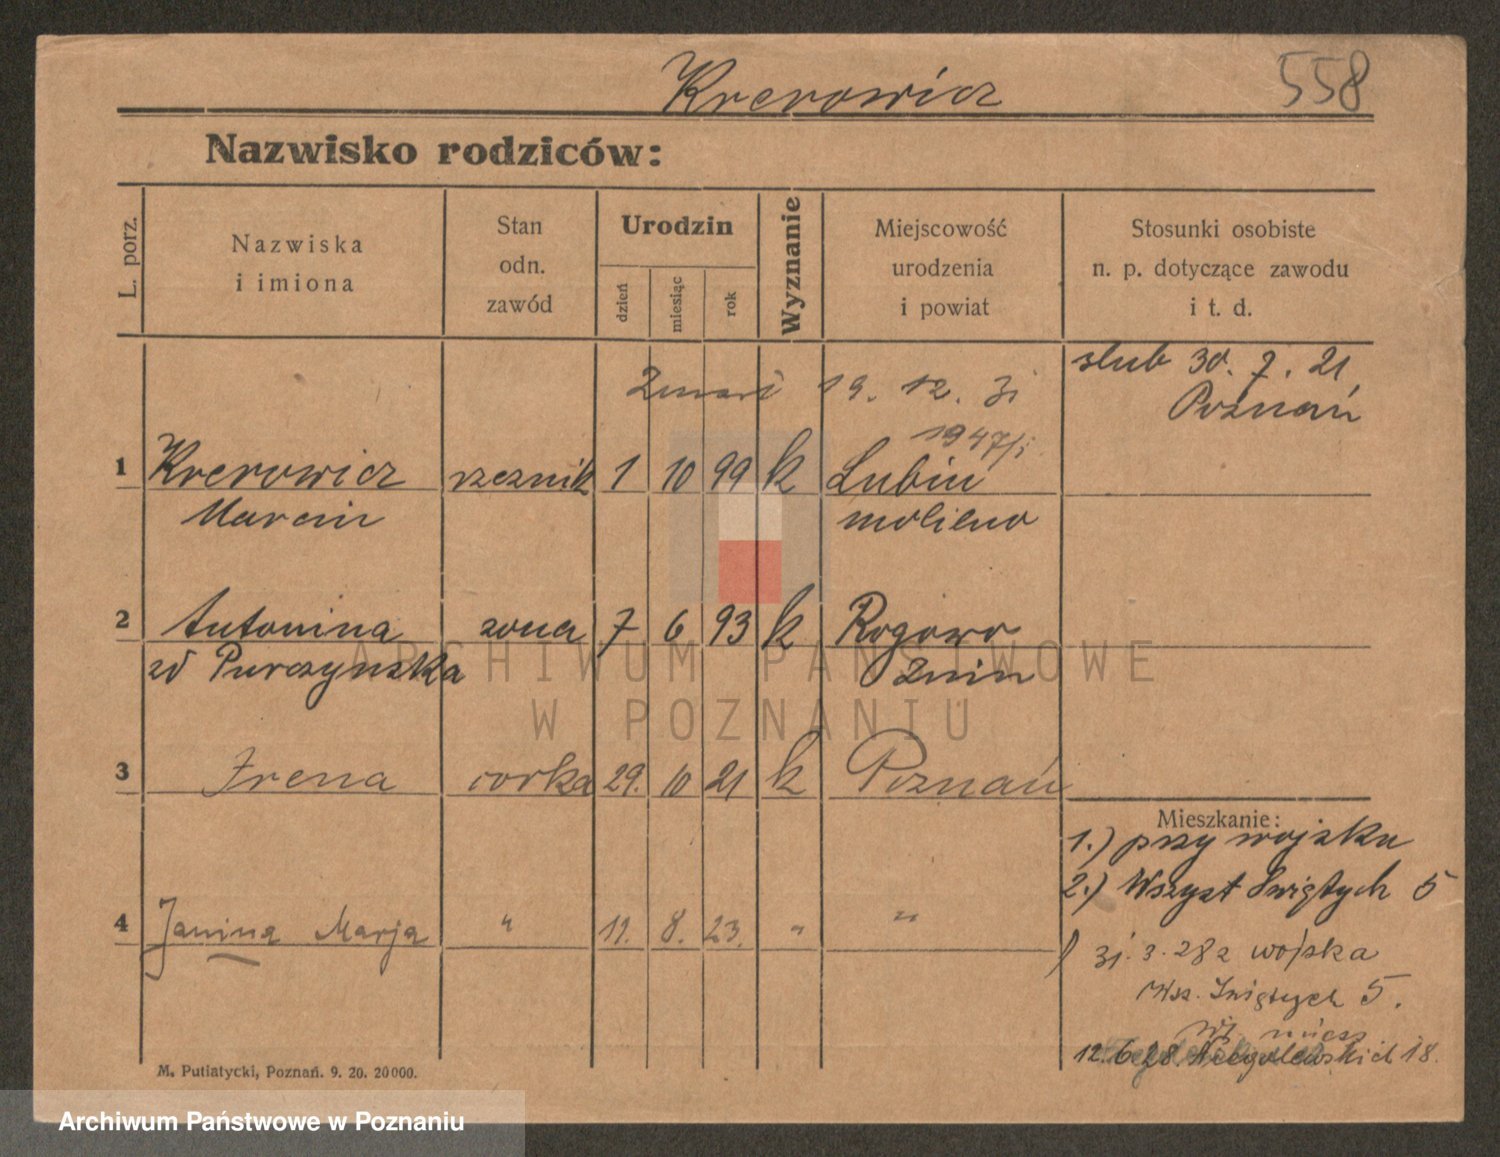 Krerowicz 558
Nazwisko rodziców:
L. porz. Nazwiska i imiona Stan odn. zawód Urodzin dzień miesiąc rok Wyznanie Miejscowość urodzenia i powiat Stosunki osobiste n. p. dotyczące zawodu i t. d.
slub 30. 7. 21
Poznań
Zmarł 19. 12. 31
1947/31
1 Krerowicz rzeznik 1 10 99 k Lubin
Marcin
2 Antonina zona 7 6 93 k Rogowo
zd Purczynska Znin
3 Irena corka 29. 10 21 k Poznań
Mieszkanie:
1.) przy wojsku
2.) Wszyst Swiętych 5
4 Janina Marja " 12. 8. 23. " "
31. 3. 28 z wojska
Wsz. Swiętych 5.
12. 6. 28. Niegolewskich 18.
M. Putiatycki, Poznań. 9. 20. 20000.
ARCHIWUM PAŃSTWOWE
W POZNANIU
Archiwum Państwowe w Poznaniu